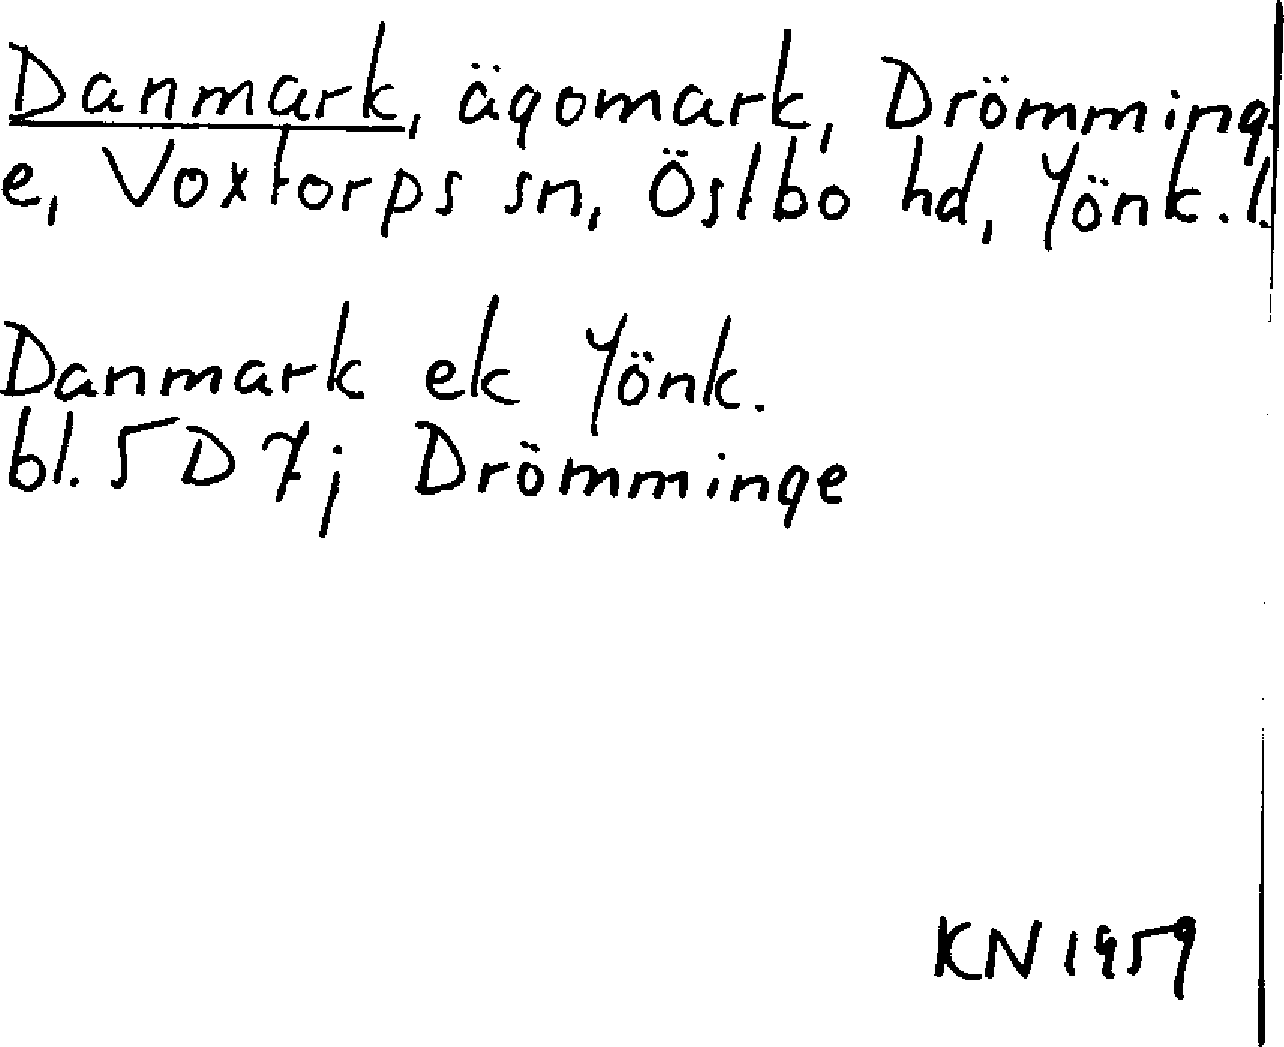 Danmark, ägomark, Drömming
e, Voxtorps sn, Östbo hd, Jönk. l.
Danmark ek Jönk.
bl. 5D 7j Drömminge
KN 1959